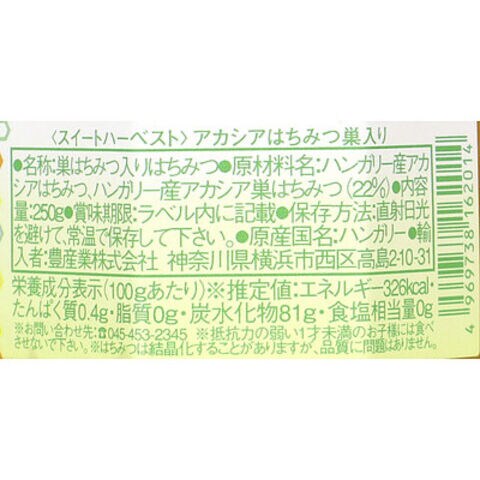 〈スイートハーベスト〉アカシアはちみつ巣入り
●名称:巣はちみつ入りはちみつ●原材料名:ハンガリー産アカ
シアはちみつ、ハンガリー産アカシア巣はちみつ(22%)●内容
量:250g●賞味期限:ラベル内に記載●保存方法:直射日光
を避けて、常温で保存して下さい。●原産国名:ハンガリー●輸
入者:豊産業株式会社 神奈川県横浜市西区高島2-10-31
栄養成分表示(100gあたり)※推定値:エネルギー326kcal・
たんぱく質0.4g・脂質0g・炭水化物81g・食塩相当量0g
※お問い合わせ先:☎045-453-2345 ※抵抗力の弱い1才未満のお子様には食べ
させないで下さい。※はちみつは結晶化することがありますが、品質に問題はありません。
4969738162014